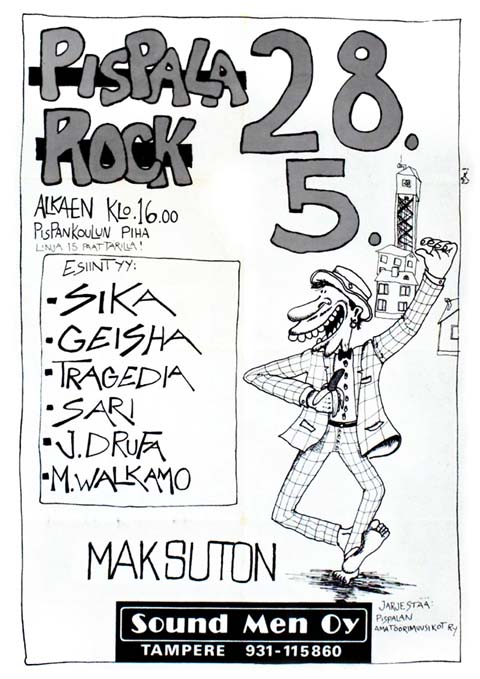 PISPALA
ROCK
28.
5.
ALKAEN KLO. 16.00
PISPANKOULUN PIHA
LINJA 15 PÄÄTTÄRILLÄ!
ESIINTYY:
SIKA
GEISHA
TRAGEDIA
SARI
J. DRUFA
M. WALKAMO
MAKSUTON
JÄRJESTÄÄ:
PISPALAN
AMATÖÖRIMUUSIKOT RY
Sound Men Oy
TAMPERE 931-115860